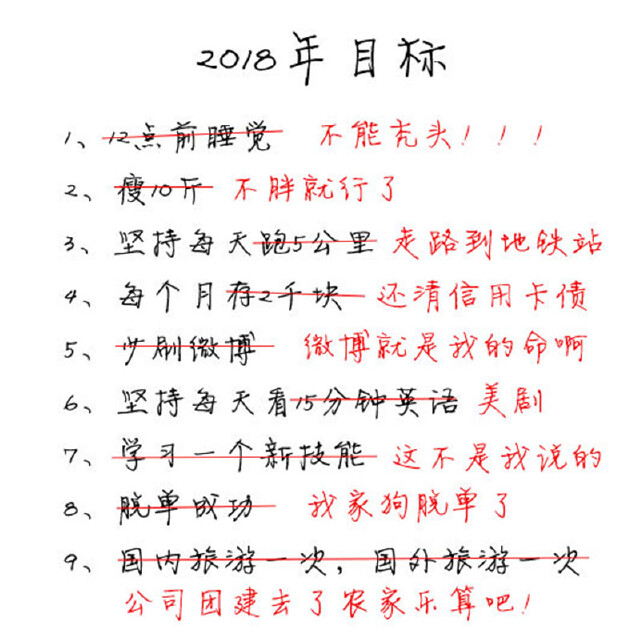 2018年目标
1、12点前睡觉 不能秃头！！！
2、瘦10斤 不胖就行了
3、坚持每天跑5公里 走路到地铁站
4、每个月存2千块 还清信用卡债
5、少刷微博 微博就是我的命啊
6、坚持每天看15分钟英语 美剧
7、学习一个新技能 这不是我说的
8、脱单成功 我家狗脱单了
9、国内旅游一次，国外旅游一次
公司团建去了农家乐算吧！